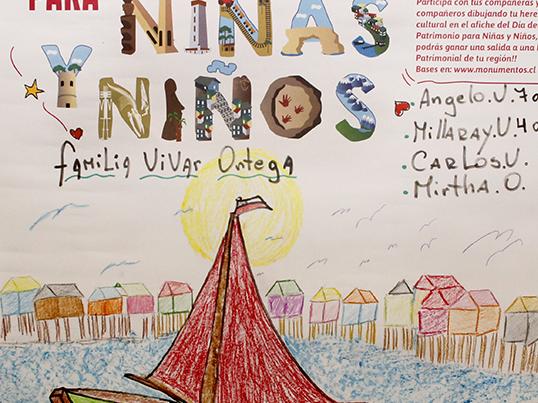 PARA
NIÑAS
Y NIÑOS
Participa con tus compañeras y
compañeros dibujando tu here
cultural en el afiche del Día de
Patrimonio para Niñas y Niños,
podrás ganar una salida a una
Patrimonial de tu región!!
Bases en: www.monumentos.cl
familia Vivar Ortega
Angelo.V.7a
Millaray.V.4
Carlos.V.
Mirtha.O.